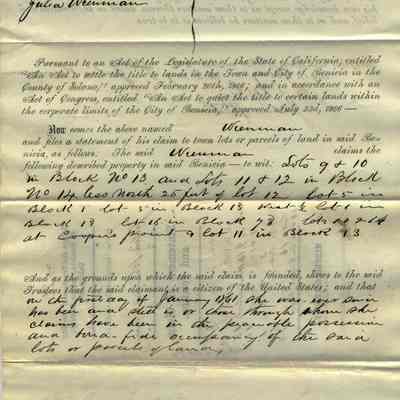 Julia Wrenman
Pursuant to an Act of the Legislature of the State of California, entitled
"An Act to settle the title to lands in the Town and City of Benicia in the
County of Solano," approved February 20th, 1866; and in accordance with an
Act of Congress, entitled "An Act to quiet the title to certain lands within
the corporate limits of the City of Benicia," approved July 23d, 1866—
Now comes the above named Wrenman
and files a statement of his claim to town lots or parcels of land in said Be-
nicia, as follows. The said Wrenman claims the
following described property in said Benicia—to wit: Lots 9 & 10
in Block No 13 and Lots 11 & 12 in Block
No 14 less North 25 feet of lot 12 lot 5 in
Block 1 lot 5 in Block 18 West ½ lot 1 in
Block 19 lot 16 in Block 73 lots
at point & lot 11 in Block 13
And as the grounds upon which the said claim is founded, shows to the said
Trustees that the said claimant is a citizen of the United States; and that
on the first day of January 1861 she was ever since
has been and still is or those through whom she
claims have been in the peaceable possession
and bona-fide occupancy of the said
lots or parcels of land,